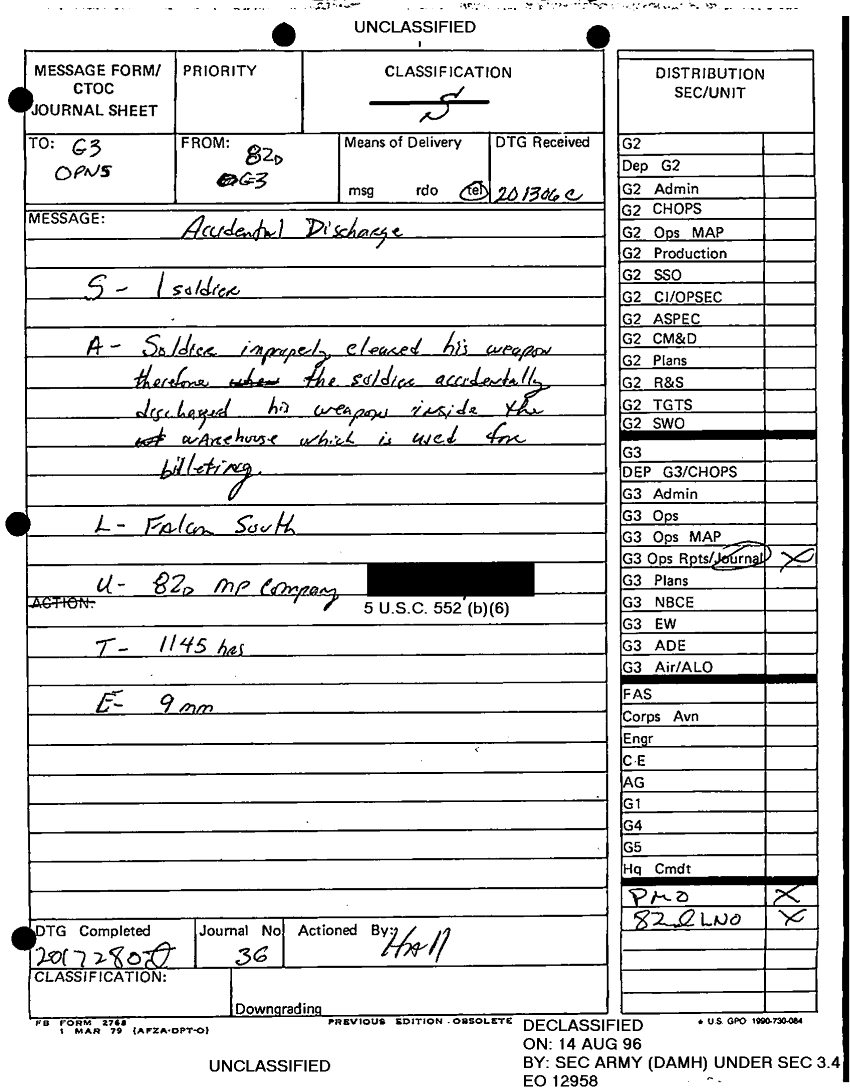 UNCLASSIFIED
MESSAGE FORM/
CTOC
JOURNAL SHEET
PRIORITY
CLASSIFICATION
S
DISTRIBUTION
SEC/UNIT
TO: G3
OPNS
FROM: 82D
G3
Means of Delivery
msg rdo tel
DTG Received
201306C
MESSAGE:
Accidental Discharge
S - 1 soldier
A - Soldier improperly cleared his weapon
therefore the soldier accidentally
discharged his weapon inside the
warehouse which is used for
billeting.
L - Falcon South
U - 82D MP Company
ACTION:
5 U.S.C. 552 (b)(6)
T - 1145 hrs
E - 9 mm
G2
Dep G2
G2 Admin
G2 CHOPS
G2 Ops MAP
G2 Production
G2 SSO
G2 CI/OPSEC
G2 ASPEC
G2 CM&D
G2 Plans
G2 R&S
G2 TGTS
G2 SWO
G3
DEP G3/CHOPS
G3 Admin
G3 Ops
G3 Ops MAP
G3 Ops Rpts/Journal X
G3 Plans
G3 NBCE
G3 EW
G3 ADE
G3 Air/ALO
FAS
Corps Avn
Engr
C-E
AG
G1
G4
G5
Hq Cmdt
PMO X
82D LNO X
DTG Completed
Journal No
36
Actioned By:
Hall
CLASSIFICATION:
Downgrading
FB FORM 2768
1 MAR 79 (AFZA-DPT-O)
PREVIOUS EDITION - OBSOLETE
* U.S. GPO 1990-730-084
DECLASSIFIED
ON: 14 AUG 96
BY: SEC ARMY (DAMH) UNDER SEC 3.4
EO 12958
UNCLASSIFIED